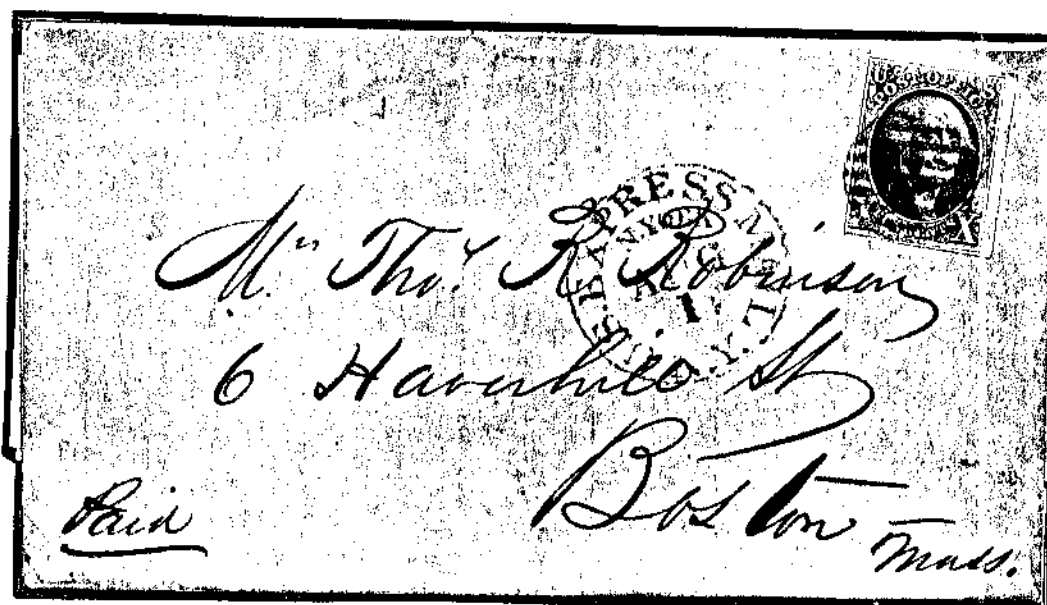 U.S. POST OFFICE
X X
U.S. EXPRESS MAIL
N. YORK
AUG
1
N.Y.
Mr. Thos. R. Robinson
6 Haverhill St
Boston
Mass.
Paid